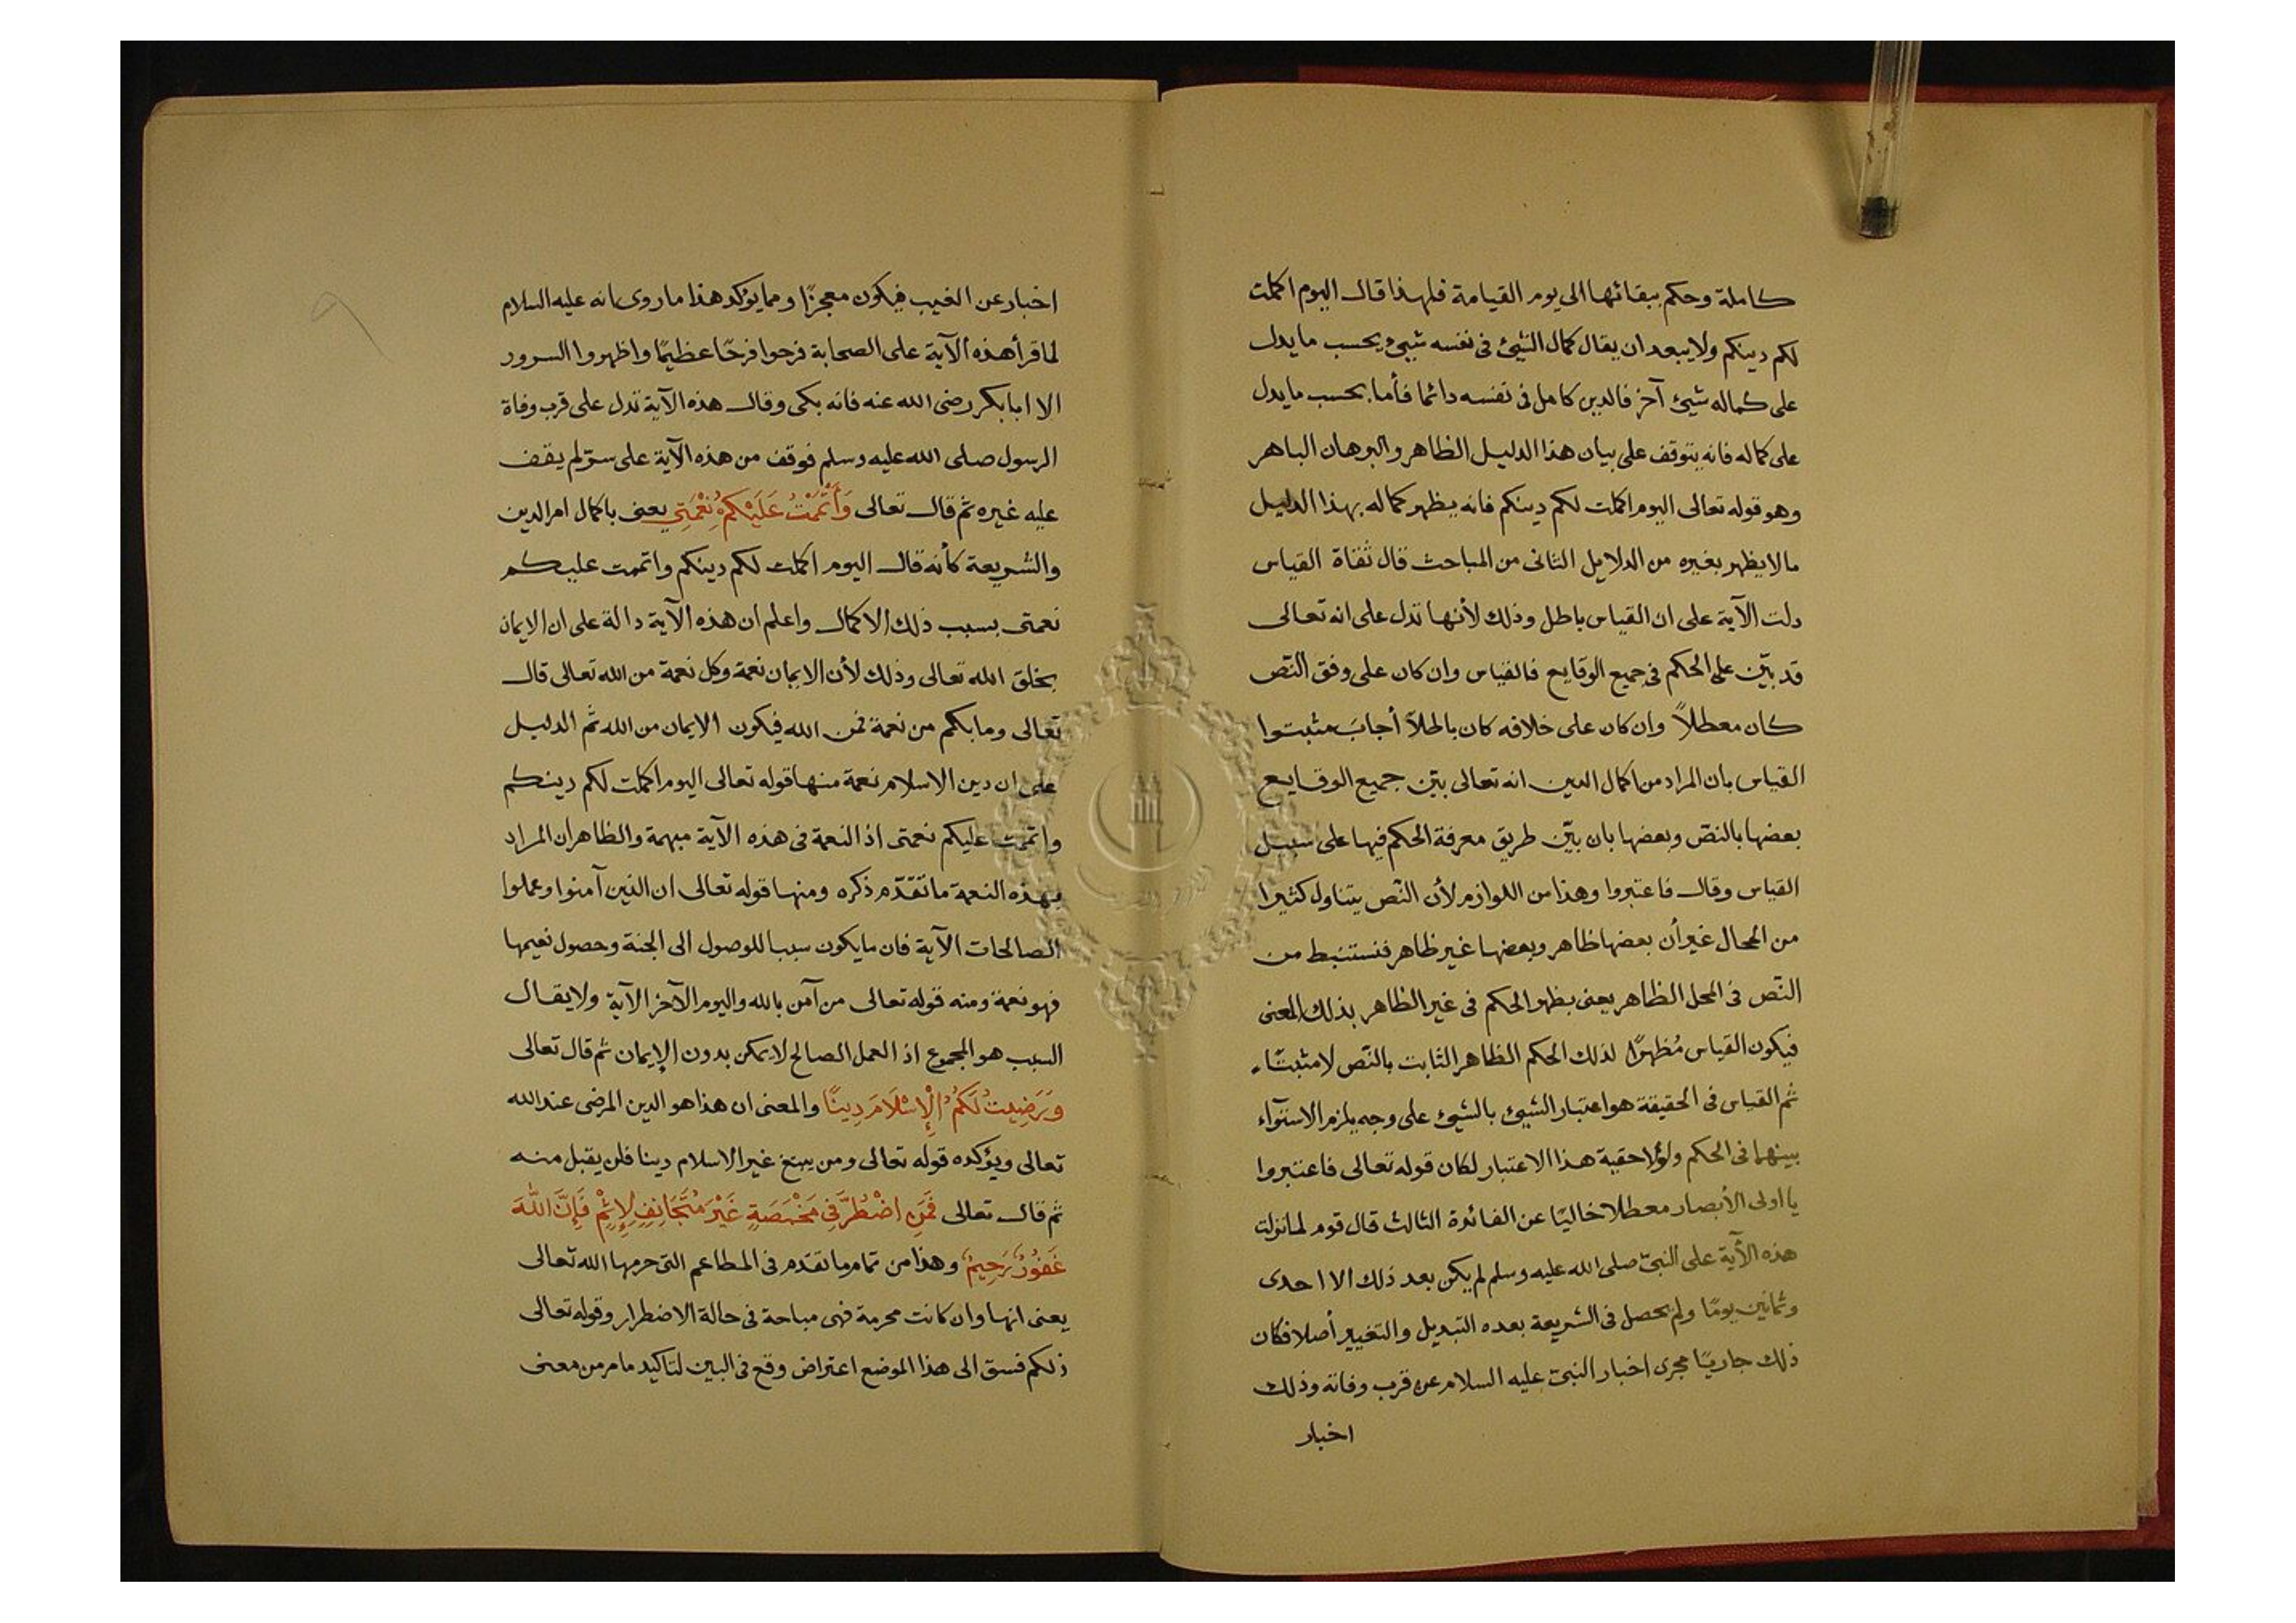 كاملة وحكم ببقائها الى يوم القيامة فلهذا قال اليوم اكملت
لكم دينكم ولا يبعد ان يقال كمال الشيئ فى نفسه شيئ وبحسب ما يدل
على كماله شيئ آخر فالدين كامل فى نفسه دائما فأما بحسب ما يدل
على كماله فانه يتوقف على بيان هذا الدليل الظاهر والبرهان الباهر
وهو قوله تعالى اليوم اكملت لكم دينكم فانه يظهر كماله بهذا الدليل
ما لا يظهر بغيره من الدلايل الثانى من المباحث قال نفاة القياس
دلت الآية على ان القياس باطل وذلك لأنها تدل على انه تعالى
قد بيّن على الحكم فى جميع الوقايع فالقياس وان كان على وفق النّص
كان معطلاً وان كان على خلافه كان باطلاً أجاب مثبتوا
القياس بان المراد من اكمال الدين انه تعالى بيّن جميع الوقايع
بعضها بالنصّ وبعضها بان بيّن طريق معرفة الحكم فيها على سبيل
القياس وقال فاعتبروا وهذا من اللوازم لأن النّص يتناول كثيرا
من المحال غير أن بعضها ظاهر وبعضها غير ظاهر فنستنبط من
النّص فى المحل الظاهر يعنى بظهر الحكم فى غير الظاهر بذلك المعنى
فيكون القياس مُظهرًا لذلك الحكم الظاهر الثابت بالنّص لا مثبتاً
ثم القياس فى الحقيقة هو اعتبار الشيئ بالشيئ على وجه يلزم الاستوآء
بينهما فى الحكم ولولا حقية هذا الاعتبار لكان قوله تعالى فاعتبروا
يا اولى الأبصار معطلا خاليًا عن الفائدة الثالث قال قوم لما نزلت
هذه الآية على النبىّ صلى الله عليه وسلم لم يكن بعد ذلك الا احدى
وثمانين يومًا ولم يحصل فى الشريعة بعده التبديل والتغيير أصلا فكان
ذلك جاريًا مجرى اخبار النبىّ عليه السلام عن قرب وفاته وذلك
اخبار
اخبار عن الغيب فيكون معجزًا ومما يؤكد هذا ما روى انه عليه السلام
لما قرأ هذه الآية على الصحابة فرحوا فرحًا عظيمًا واظهروا السرور
الا ابا بكر رضى الله عنه فانه بكى وقال هذه الآية تدل على قرب وفاة
الرسول صلى الله عليه وسلم فوقف من هذه الآية على سرّ لم يقف
عليه غيره ثم قال تعالى وَأَتْمَمْتُ عَلَيْكُمْ نِعْمَتِي يعنى باكمال امر الدين
والشريعة كأنه قال اليوم اكملت لكم دينكم واتممت عليكم
نعمتى بسبب ذلك الاكمال واعلم ان هذه الآية دالة على ان الايمان
بخلق الله تعالى وذلك لأن الايمان نعمة وكل نعمة من الله تعالى قال
تعالى وما بكم من نعمة فمن الله فيكون الايمان من الله ثم الدليل
على ان دين الاسلام نعمة منها قوله تعالى اليوم اكملت لكم دينكم
واتممت عليكم نعمتى اذ النعمة فى هذه الآية مبهمة والظاهر ان المراد
بهذه النعمة ما تقدّم ذكره ومنها قوله تعالى ان الذين آمنوا وعملوا
الصالحات الآية فان ما يكون سببا للوصول الى الجنة وحصول نعيمها
فهو نعمة ومنه قوله تعالى من آمن بالله واليوم الآخر الآية ولا يقال
السبب هو المجموع اذ العمل الصالح لا يمكن بدون الإيمان ثم قال تعالى
وَرَضِيتُ لَكُمُ الْإِسْلَامَ دِينًا والمعنى ان هذا هو الدين المرضى عند الله
تعالى ويؤكده قوله تعالى ومن يبتغ غير الاسلام دينا فلن يقبل منه
ثم قال تعالى فَمَنِ اضْطُرَّ فِي مَخْمَصَةٍ غَيْرَ مُتَجَانِفٍ لِإِثْمٍ فَإِنَّ اللهَ
غَفُورٌ رَحِيمٌ وهذا من تمام ما تقدّم فى المطاعم التى حرمها الله تعالى
يعنى انها وان كانت محرمة فهى مباحة فى حالة الاضطرار وقوله تعالى
ذلكم فسق الى هذا الموضع اعتراض وقع فى البين لتاكيد ما مر من معنى